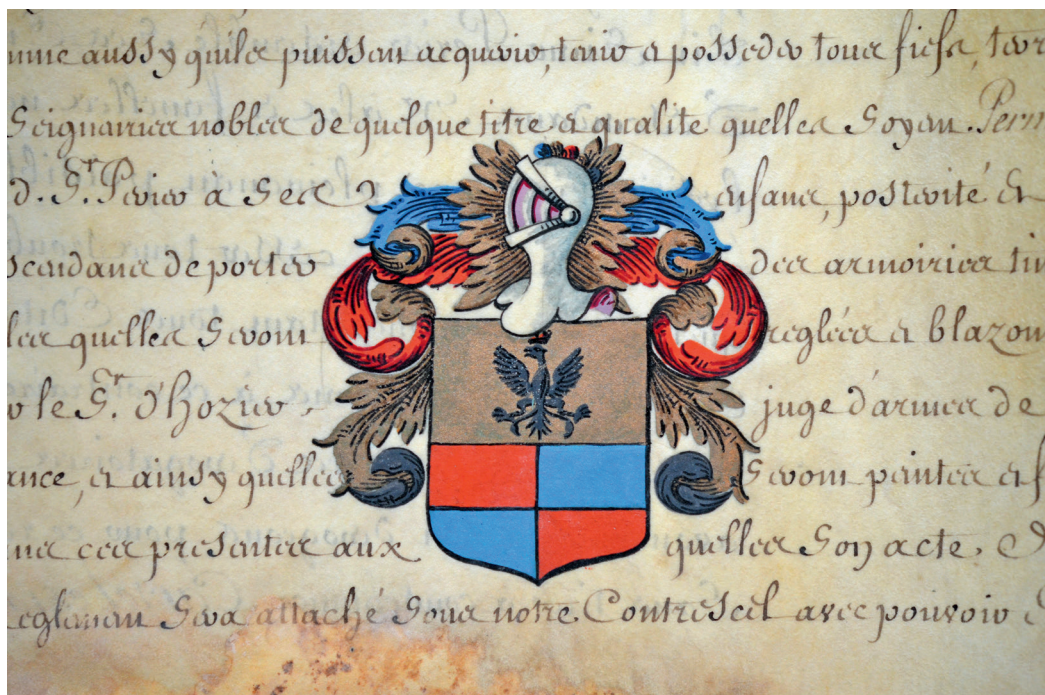 mme aussy quils puissent acquerir, tenir et posseder tous fiefs, terr
Seigneuries nobles de quelque titre et qualité quelles Soyent. Perm
d. Sr. Perier à Ses enfans, posterité et
scendans de porter des armoiries tim
les quelles Seront reglées et blazon
r le Sr. d'hozier, juge d'armes de
ance, et ainsy quelles Seront peintes et f
ans ces presentes aux quelles Son acte. d
reglement Sera attaché Sous notre Contrescel avec pouvoir